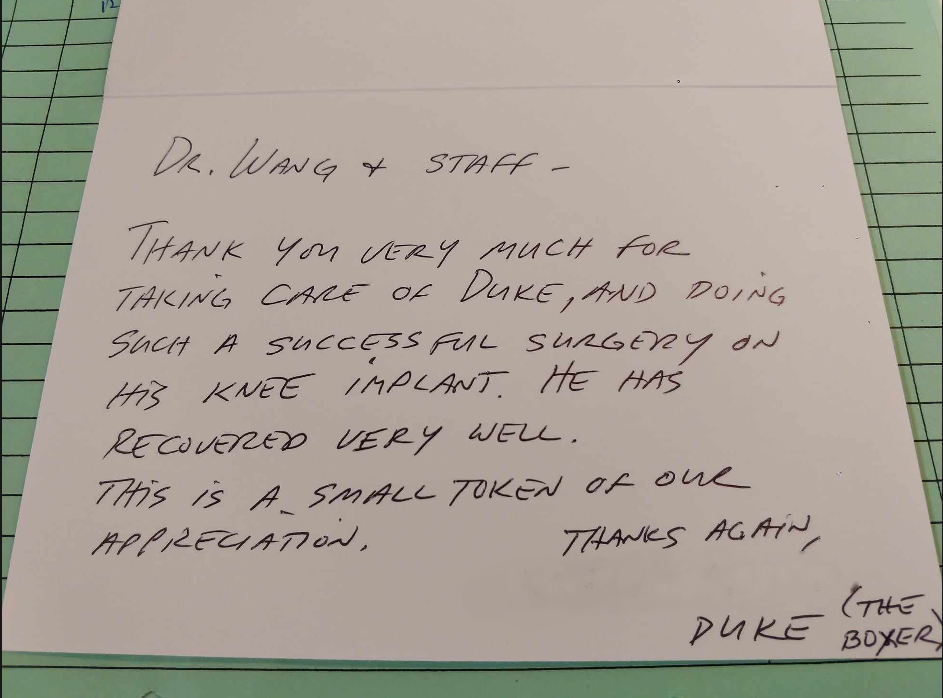 DR. WANG & STAFF -
THANK YOU VERY MUCH FOR
TAKING CARE OF DUKE, AND DOING
SUCH A SUCCESSFUL SURGERY ON
HIS KNEE IMPLANT. HE HAS
RECOVERED VERY WELL.
THIS IS A SMALL TOKEN OF OUR
APPRECIATION. THANKS AGAIN,
DUKE (THE
BOXER)